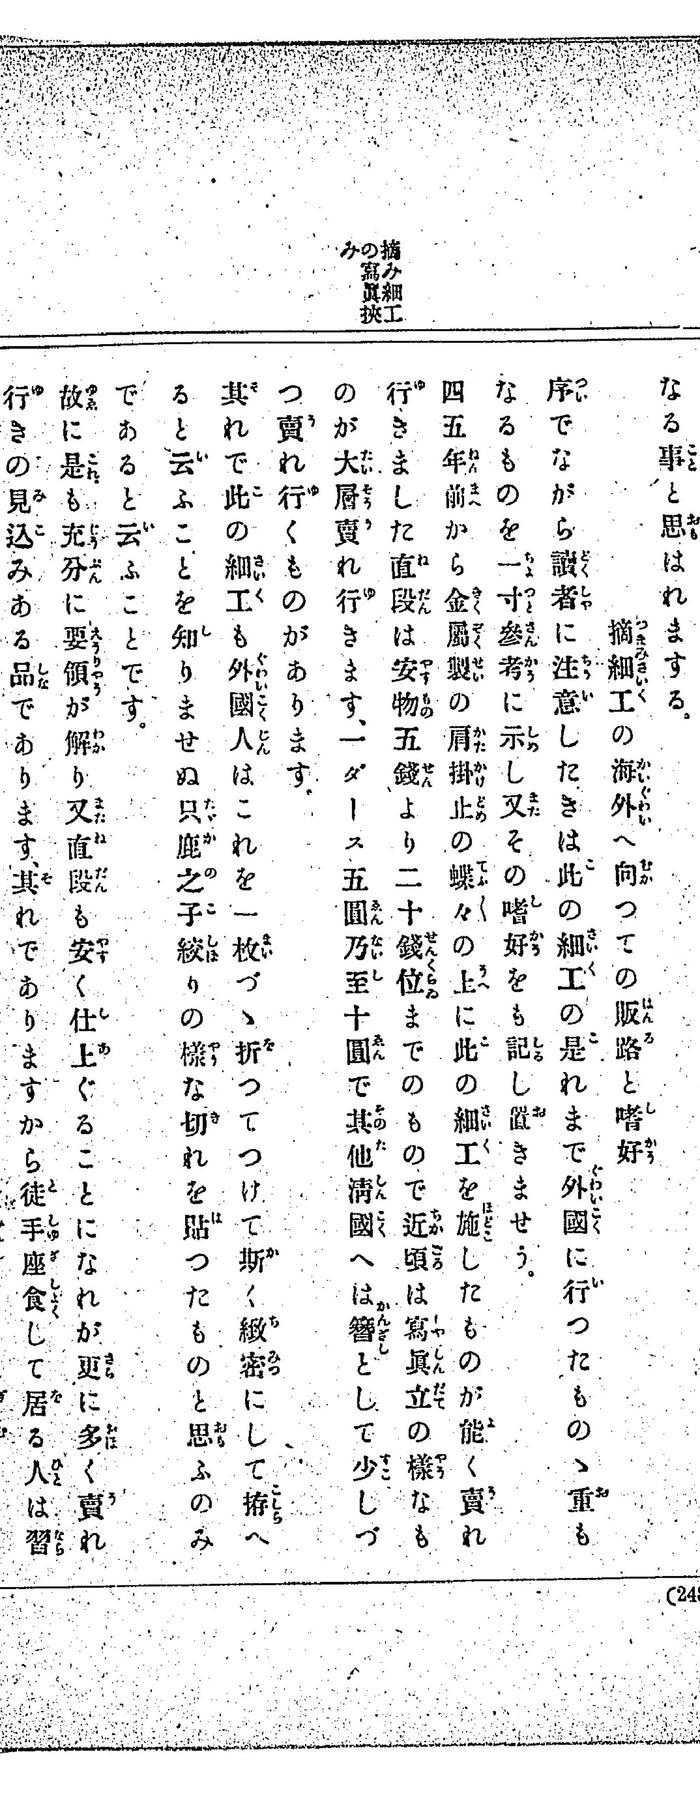 摘み細工
の寫眞挾
み
なる事と思はれまする。
摘細工の海外へ向つての販路と嗜好
序でながら讀者に注意したきは此の細工の是れまで外國に行つたものゝ重も
なるものを一寸參考に示し又その嗜好をも記し置きませう。
四五年前から金屬製の肩掛止の蝶々の上に此の細工を施したものが能く賣れ
行きました直段は安物五錢より二十錢位までのもので近頃は寫眞立の樣なも
のが大層賣れ行きます、一ダース五圓乃至十圓で其他淸國へは簪として少しづ
つ賣れ行くものがあります。
其れで此の細工も外國人はこれを一枚づゝ折つてつけて斯く緻密にして拵へ
ると云ふことを知りませぬ只鹿之子絞りの樣な切れを貼つたものと思ふのみ
であると云ふことです。
故に是も充分に要領が解り又直段も安く仕上ぐることになれが更に多く賣れ
行きの見込みある品であります、其れでありますから徒手座食して居る人は習
(248